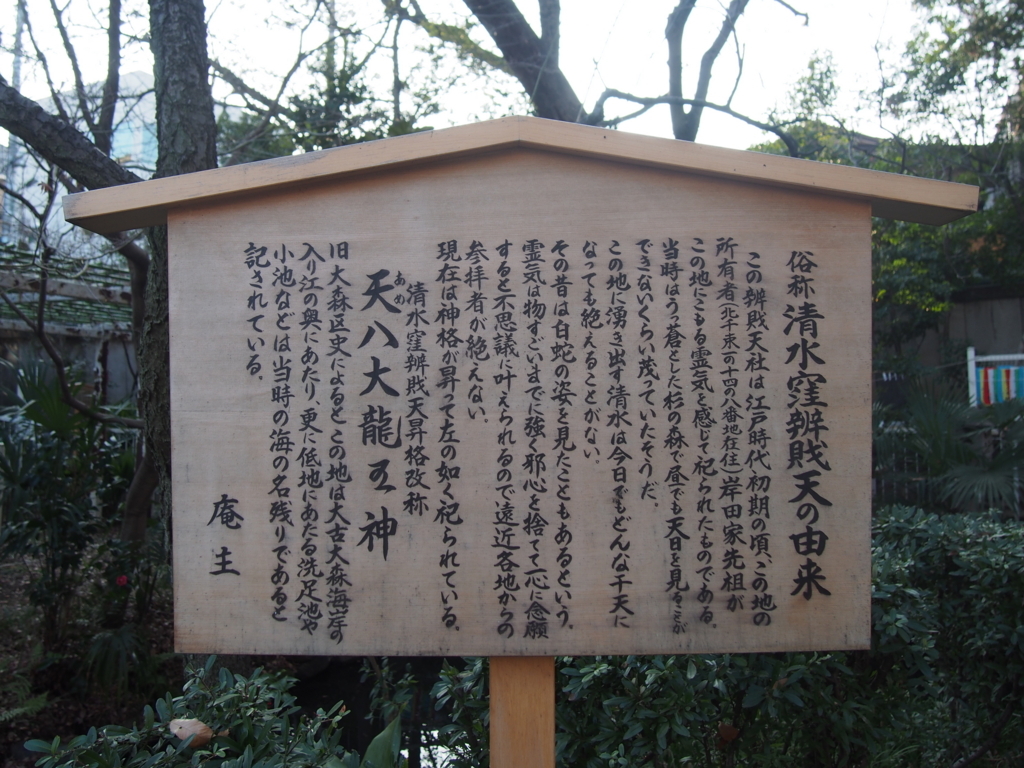 俗称清水窪辨財天の由来
この辨財天社は江戸時代初期の頃、この地の
所有者（北千束一の十四の八番地在住）岸田家先祖が
この地にこもる霊気を感じて祀られたものである。
当時はうっ蒼とした杉の森で昼でも天日を見ることが
できないくらい茂っていたそうだ。
この地に湧き出す清水は今日でもどんな干天に
なっても絶えることがない。
その昔は白蛇の姿を見たこともあるという。
霊気は物すごいまでに強く邪心を捨てて一心に念願
すると不思議に叶えられるので遠近各地からの
参拝者が絶えない。
現在は神格が昇って左の如く祀られている。
清水窪辨財天昇格改称
天八大龍王神
あめ
旧大森区史によるとこの地は大古大森海岸の
入り江の奥にあたり、更に低地にあたる洗足池や
小池などは当時の海の名残りであると
記されている。
庵主